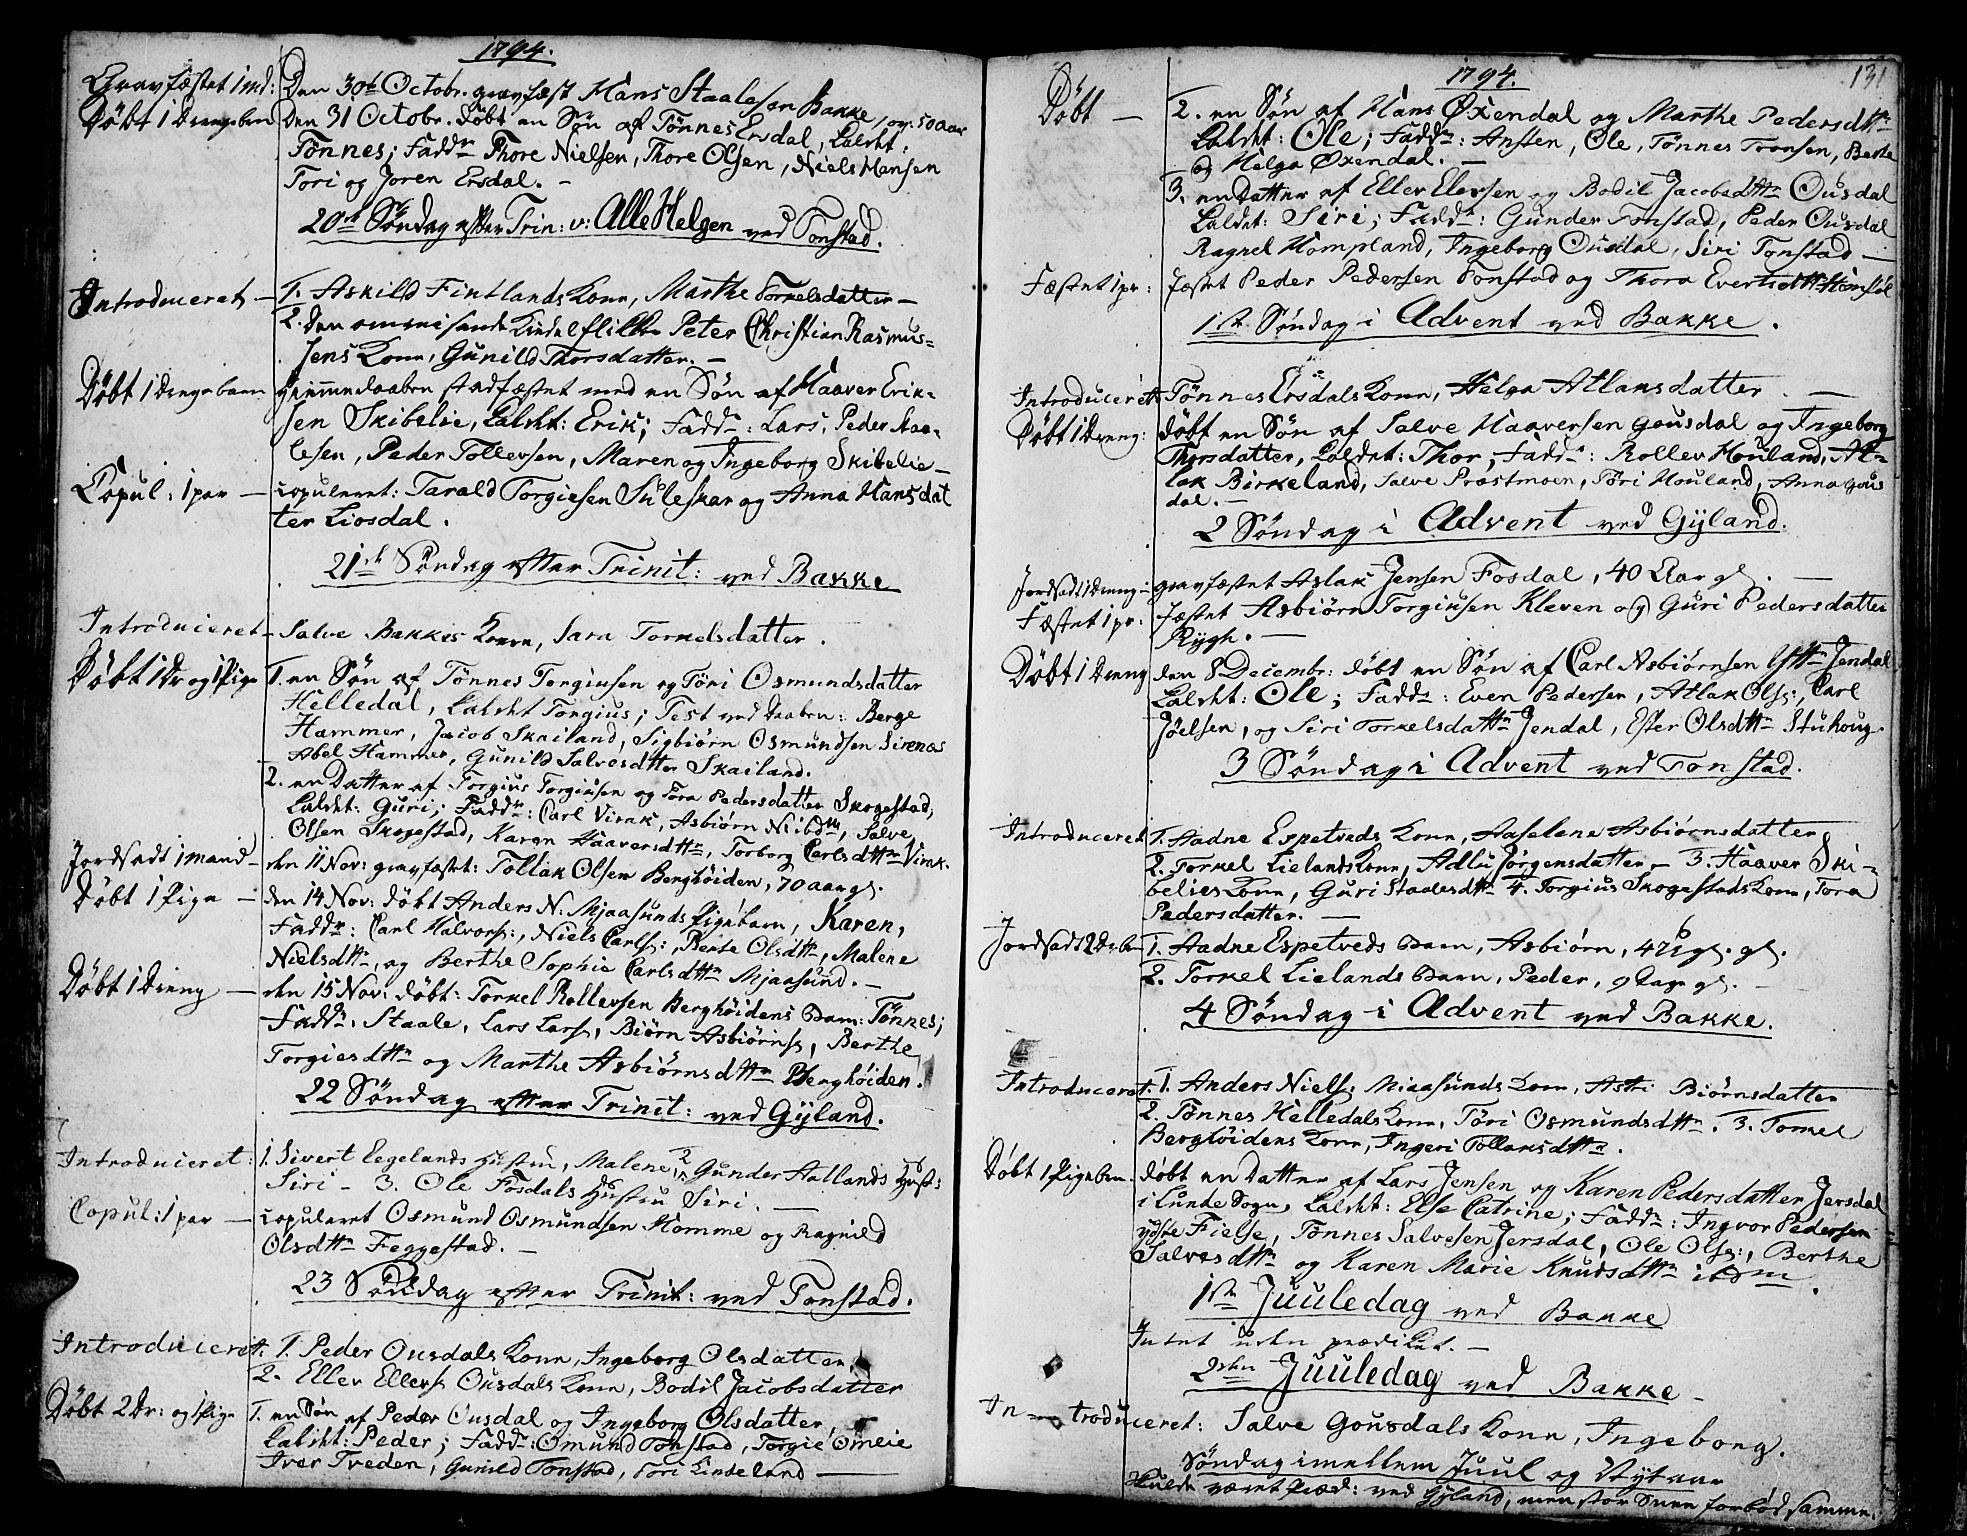 1794.
Gravfæstet 1 md: Den 30te Octobr. gravfæst Hans Staalesen Bakke, 50 aar
Døbt 1 Drengebarn Den 31 Octobr. døbt en Søn af Tønnes Ersdal, kaldet:
Tønnes; Faddr Thore Nielsen, Thore Olsen, Niels Hansen
Tori og Joren Ersdal. -
20de Søndag efter Trin: v: Alle Helgen ved Tonstad.
Introduceret - 1. Askild Fintlands Kone, Marthe Torkelsdatter -
2. Peter Christian Rasmus=
sens Kone, Gunild Thorsdatter. -
Døbt 1 Drengebarn Hiemmedaaben stadfæstet med en Søn af Haaver Erik=
sen Skibelie, kaldet: Erik; Faddr: Lars, Peder Aa=
lesen, Peder Tollevsen, Maren og Ingeborg Skibelie -
Copul: 1 par - copuleret: Tarald Torgiesen Suleskar og Anna Hansdat
ter Liosdal.
21de Søndag efter Trinit: ved Bakke
Introduceret - Salve Bakkes Kone, Sara Torkelsdatter.
Døbt 1 Dr og 1 Pige 1. en Søn af Tønnes Torgiusen og Tori Osmundsdatter
Helledal, kaldet Torgius; Test ved Daaben: Berge
Hammer, Jacob Skailand, Sigbiørn Osmundsen Sirenæs
Abel Hammer, Gunild Salvesdtter Skailand.
2. en Datter af Torgius Torgiusen og Tora Pedersdatter Skogestad,
kaldet: Guri; Faddr: Carl Virak, Asbiørn ibdm, Salve
Olsen Skogestad, Karen Haaversdttr, Torborg Carlsdttr Virak.
Jordsadt 1 mand - den 11 Nov: gravfæstet: Tollak Olsen Berghøiden, 70 aar gl.
Døbt 1 Pige - den 14 Nov: døbt Anders N: Mjaasunds Pigebarn, Karen,
Faddr: Carl Halvors:, Niels Carls:, Berte Olsdttr, Malene
Nielsdttr, og Berthe Sophie Carlsdttr Mjaasund. -
Døbt 1 Dreng - den 15 Nov: døbt: Torkel Rollevsen Berghøidens Barn: Tønnes;
Faddr: Staale, Lars Lars:, Biørn Asbiørns:, Berthe
Torgiesdttr og Marthe Asbiørnsdttr Berghøiden.
22 Søndag efter Trinit: ved Gyland.
Introduceret: 1. Sivert Eegelands Hustru, Malene 2. Gunder Aatlands Hust:
Siri - 3. Ole Fosdals Hustru Siri. -
Copul: 1 par - copuleret Osmund Osmundsen Homme og Ragnild
Olsdttr Feggestad. -
23 Søndag efter Trinit: ved Tonstad.
Introduceret: 1. Peder Ousdals Kone, Ingeborg Olsdatter
2. Eller Ellers: Ousdals Kone, Bodil Jacobsdatter
Døbt 2 Dr: og 1 Pige 1. en Søn af Peder Ousdal og Ingeborg Olsdatter,
kaldet: Peder; Faddr: Omund Tonstad, Torgie Omlie
Iver Tveden, Gunild Tonstad, Tori Lindeland -
1794. 131
Døbt - 2. en Søn af Hans Øxendal og Marthe Pedersdttr
kaldet: Ole; Faddr: Ansten, Ole, Tønnes Tronsen, Berte
og Helga Øxendal. -
3. en Datter af Eller Elersen og Bodil Jacobsdttr Ousdal
kaldet: Siri; Faddr: Gunder Tonstad, Peder Ousdal
Ragnel Hompland, Ingeborg Ousdal, Siri Tonstad -
Fæstet 1 pr: fæstet Peder Pedersen Tonstad og Thora Evertsdttr
1ste Søndag i Advent ved Bakke.
Introduceret Tønnes Ersdals Kone, Helga Atlaksdatter. -
Døbt 1 Dreng: døbt en Søn af Salve Haaversen Gousdal og Ingeborg
Thorsdatter, kaldet: Thor, Faddr: Rollev Houland, At=
lak Birkeland, Salve Præstmoen, Tori Houland, Anna Gous
dal. -
2 Søndag i Advent ved Gyland.
Jordsadt 1 Dreng - gravfæstet Aslak Jensen Fosdal, 40 Aar gl. -
Fæstet 1 pr: fæstet Asbiørn Torgiusen Kleven og Guri Pedersdatter
Rygh. -
Døbt 1 Dreng den 8 Decembr: døbt en Søn af Carl Asbiørnsen Jendal
kaldet: Ole; Faddr: Even Pedersen, Atlak Ols:, Carl
Joelsen, og Siri Torkelsdattr Jendal, Ester Olsdttr Stuhoug.
3 Søndag i Advent ved Tonstad.
Introduceret 1. Aadne Espetveds Kone, Aaselene Asbiørnsdatter
2. Torkel Lielands Kone, Adlu Jørgensdatter - 3. Haaver Ski=
belies Kone, Guri Staalesdttr 4. Torgius Skogestads Kone, Tora
Pedersdatter. -
Jordsadt 2 Drbn 1. Aadne Espetveds Barn, Asbiørn, gl.
2. Torkel Lielands Barn, Peder, 9 Dage gl. -
4 Søndag i Advent ved Bakke.
Introduceret. 1. Anders Niels: Miaasunds Kone, Astri Biørnsdatter
2. Tønnes Helledals Kone, Tori Osmundsdttr. 3. Torkel
Berghøidens Kone, Ingeri Tollaksdttr.
Døbt 1 Pigebn. døbt en Datter af Lars Jensen og Karen Pedersdatter Jersdal
i Lunde Sogn, kaldet: Else Catrine; Faddr: Ingvor Pedersen
ydste Fielse, Tønnes Salvesen Jersdal, Ole Ols:, Berthe
Salvesdttr og Karen Marie Knudsdttr ibdm.
1ste Juuledag ved Bakke
Intet uden prædiket. -
2den Juuledag ved Bakke -
In - troduceret: Salve Gousdals Kone, Ingeborg.
Søndag imellem Juul og Nytaar
skulde været Præd: ved Gyland, men stor Snee forbød samme.